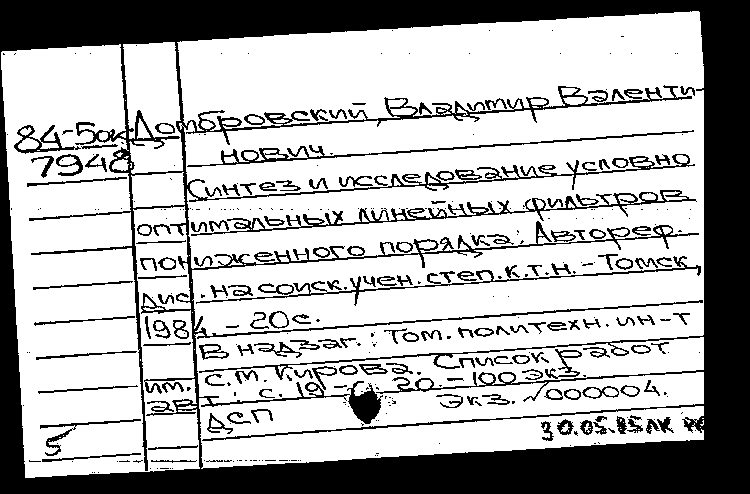 84-5ок Домбровский, Владимир Валенти-
7948 нович.
Синтез и исследование условно
оптимальных линейных фильтров
пониженного порядка: Автореф.
дис. на соиск. учен. степ. к.т.н. - Томск,
1984. - 20 с.
В надзаг.: Том. политехн. ин-т
им. С.М. Кирова. Список работ
авт: с. 19-20. - 100 экз.
ДСП Экз. √000004.
5 30.05.85